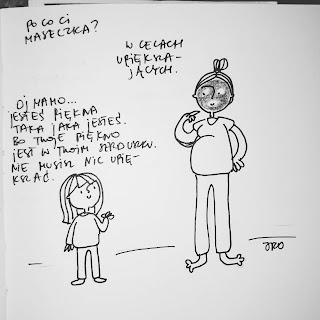 PO CO CI
MASECZKA?
W CELACH
UPIĘKSZA-
JĄCYCH.
OJ MAMO...
JESTEŚ PIĘKNA
TAKA JAKA JESTEŚ.
BO TWOJE PIĘKNO
JEST W TWOIM SERDUKU.
NIE MUSISZ NIC UPIĘ-
KSZAĆ.
JRO